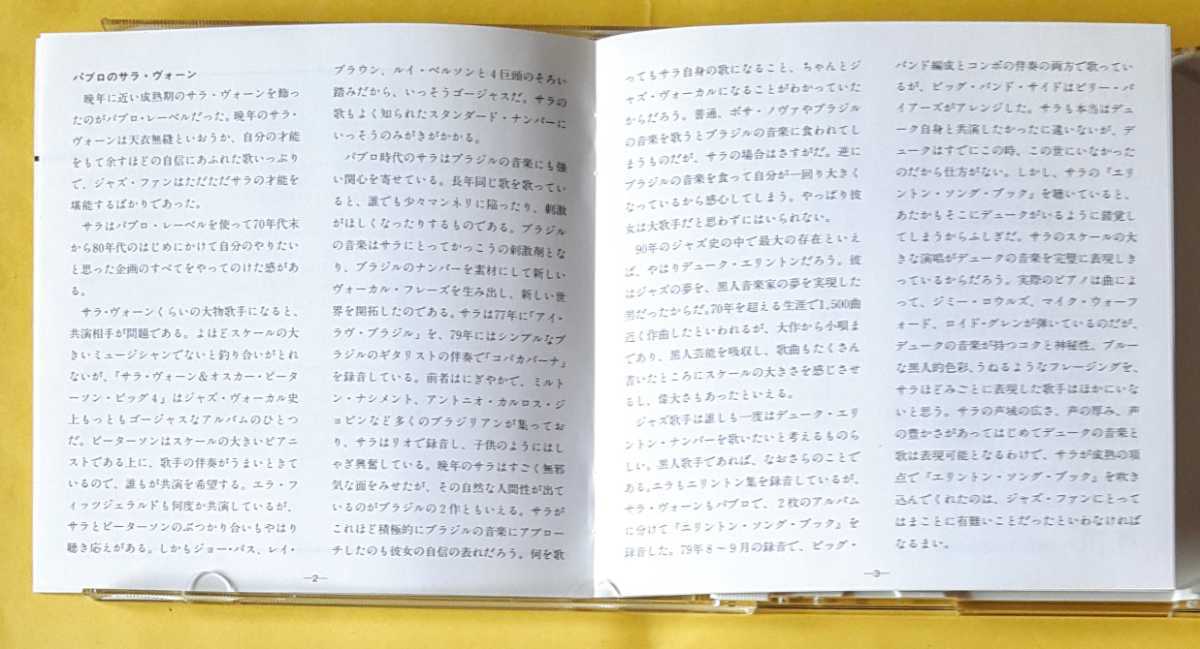 パブロのサラ・ヴォーン
晩年に近い成熟期のサラ・ヴォーンを飾っ
たのがパブロ・レーベルだった。晩年のサラ・
ヴォーンは天衣無縫といおうか、自分の才能
をもて余すほどの自信にあふれた歌いっぷり
で、ジャズ・ファンはただただサラの才能を
堪能するばかりであった。
サラはパブロ・レーベルを使って70年代末
から80年代のはじめにかけて自分のやりたい
と思った企画のすべてをやってのけた感があ
る。
サラ・ヴォーンくらいの大物歌手になると、
共演相手が問題である。よほどスケールの大
きいミュージシャンでないと釣り合いがとれ
ないが、「サラ・ヴォーン&オスカー・ピータ
ーソン・ビッグ4」はジャズ・ヴォーカル史
上もっともゴージャスなアルバムのひとつ
だ。ピーターソンはスケールの大きいピアニ
ストである上に、歌手の伴奏がうまいときて
いるので、誰もが共演を希望する。エラ・フ
ィッツジェラルドも何度か共演しているが、
サラとピーターソンのぶつかり合いもやはり
聴き応えがある。しかもジョー・パス、レイ・
ブラウン、ルイ・ベルソンと4巨頭のそろい
踏みだから、いっそうゴージャスだ。サラの
歌もよく知られたスタンダード・ナンバーに
いっそうのみがきがかかる。
パブロ時代のサラはブラジルの音楽にも強
い関心を寄せている。長年同じ歌を歌ってい
ると、誰でも少々マンネリに陥ったり、刺激
がほしくなったりするものである。ブラジル
の音楽はサラにとってかっこうの刺激剤とな
り、ブラジルのナンバーを素材にして新しい
ヴォーカル・フレーズを生み出し、新しい世
界を開拓したのである。サラは77年に「アイ・
ラヴ・ブラジル」を、79年にはシンプルなブ
ラジルのギタリストの伴奏で「コパカバーナ」
を録音している。前者はにぎやかで、ミルト
ン・ナシメント、アントニオ・カルロス・ジ
ョビンなど多くのブラジリアンが集ってお
り、サラはリオで録音し、子供のようにはし
ゃぎ興奮している。晩年のサラはすごく無邪
気な面をみせたが、その自然な人間性が出て
いるのがブラジルの2作ともいえる。サラが
これほど積極的にブラジルの音楽にアプロー
チしたのも彼女の自信の表れだろう。何を歌
—2—
ってもサラ自身の歌になること、ちゃんとジ
ャズ・ヴォーカルになることがわかっていた
からだろう。普通、ボサ・ノヴァやブラジル
の音楽を歌うとブラジルの音楽に食われてし
まうものだが、サラの場合はさすがだ。逆に
ブラジルの音楽を食って自分が一回り大きく
なっているから感心してしまう。やっぱり彼
女は大歌手だと思わずにはいられない。
90年のジャズ史の中で最大の存在といえ
ば、やはりデューク・エリントンだろう。彼
はジャズの夢を、黒人音楽家の夢を実現した
男だったからだ。70年を超える生涯で1,500曲
近く作曲したといわれるが、大作から小唄ま
であり、黒人芸能を吸収し、歌曲もたくさん
書いたところにスケールの大きさを感じさせ
るし、偉大さもあったといえる。
ジャズ歌手は誰しも一度はデューク・エリ
ントン・ナンバーを歌いたいと考えるものら
しい。黒人歌手であれば、なおさらのことで
ある。エラもエリントン集を録音しているが、
サラ・ヴォーンもパブロで、2枚のアルバム
に分けて『エリントン・ソング・ブック』を
録音した。79年8～9月の録音で、ビッグ・
バンド編成とコンボの伴奏の両方で歌ってい
るが、ビッグ・バンド・サイドはビリー・バ
イアーズがアレンジした。サラも本当はデュ
ーク自身と共演したかったに違いないが、デ
ュークはすでにこの時、この世にいなかった
のだから仕方がない。しかし、サラの『エリ
ントン・ソング・ブック』を聴いていると、
あたかもそこにデュークがいるように錯覚し
てしまうからふしぎだ。サラのスケールの大
きな演唱がデュークの音楽を完璧に表現しき
っているからだろう。実際のピアノは曲によ
って、ジミー・ロウルズ、マイク・ウォーフ
ォード、ロイド・グレンが弾いているのだが、
デュークの音楽が持つコクと神秘性、ブルー
な黒人的色彩、うねるようなフレージングを、
サラほどみごとに表現した歌手はほかにいな
いと思う。サラの声域の広さ、声の厚み、声
の豊かさがあってはじめてデュークの音楽と
歌は表現可能となるわけで、サラが成熟の頂
点で『エリントン・ソング・ブック』を吹き
込んでくれたのは、ジャズ・ファンにとって
はまことに有難いことだったといわなければ
なるまい。
—3—